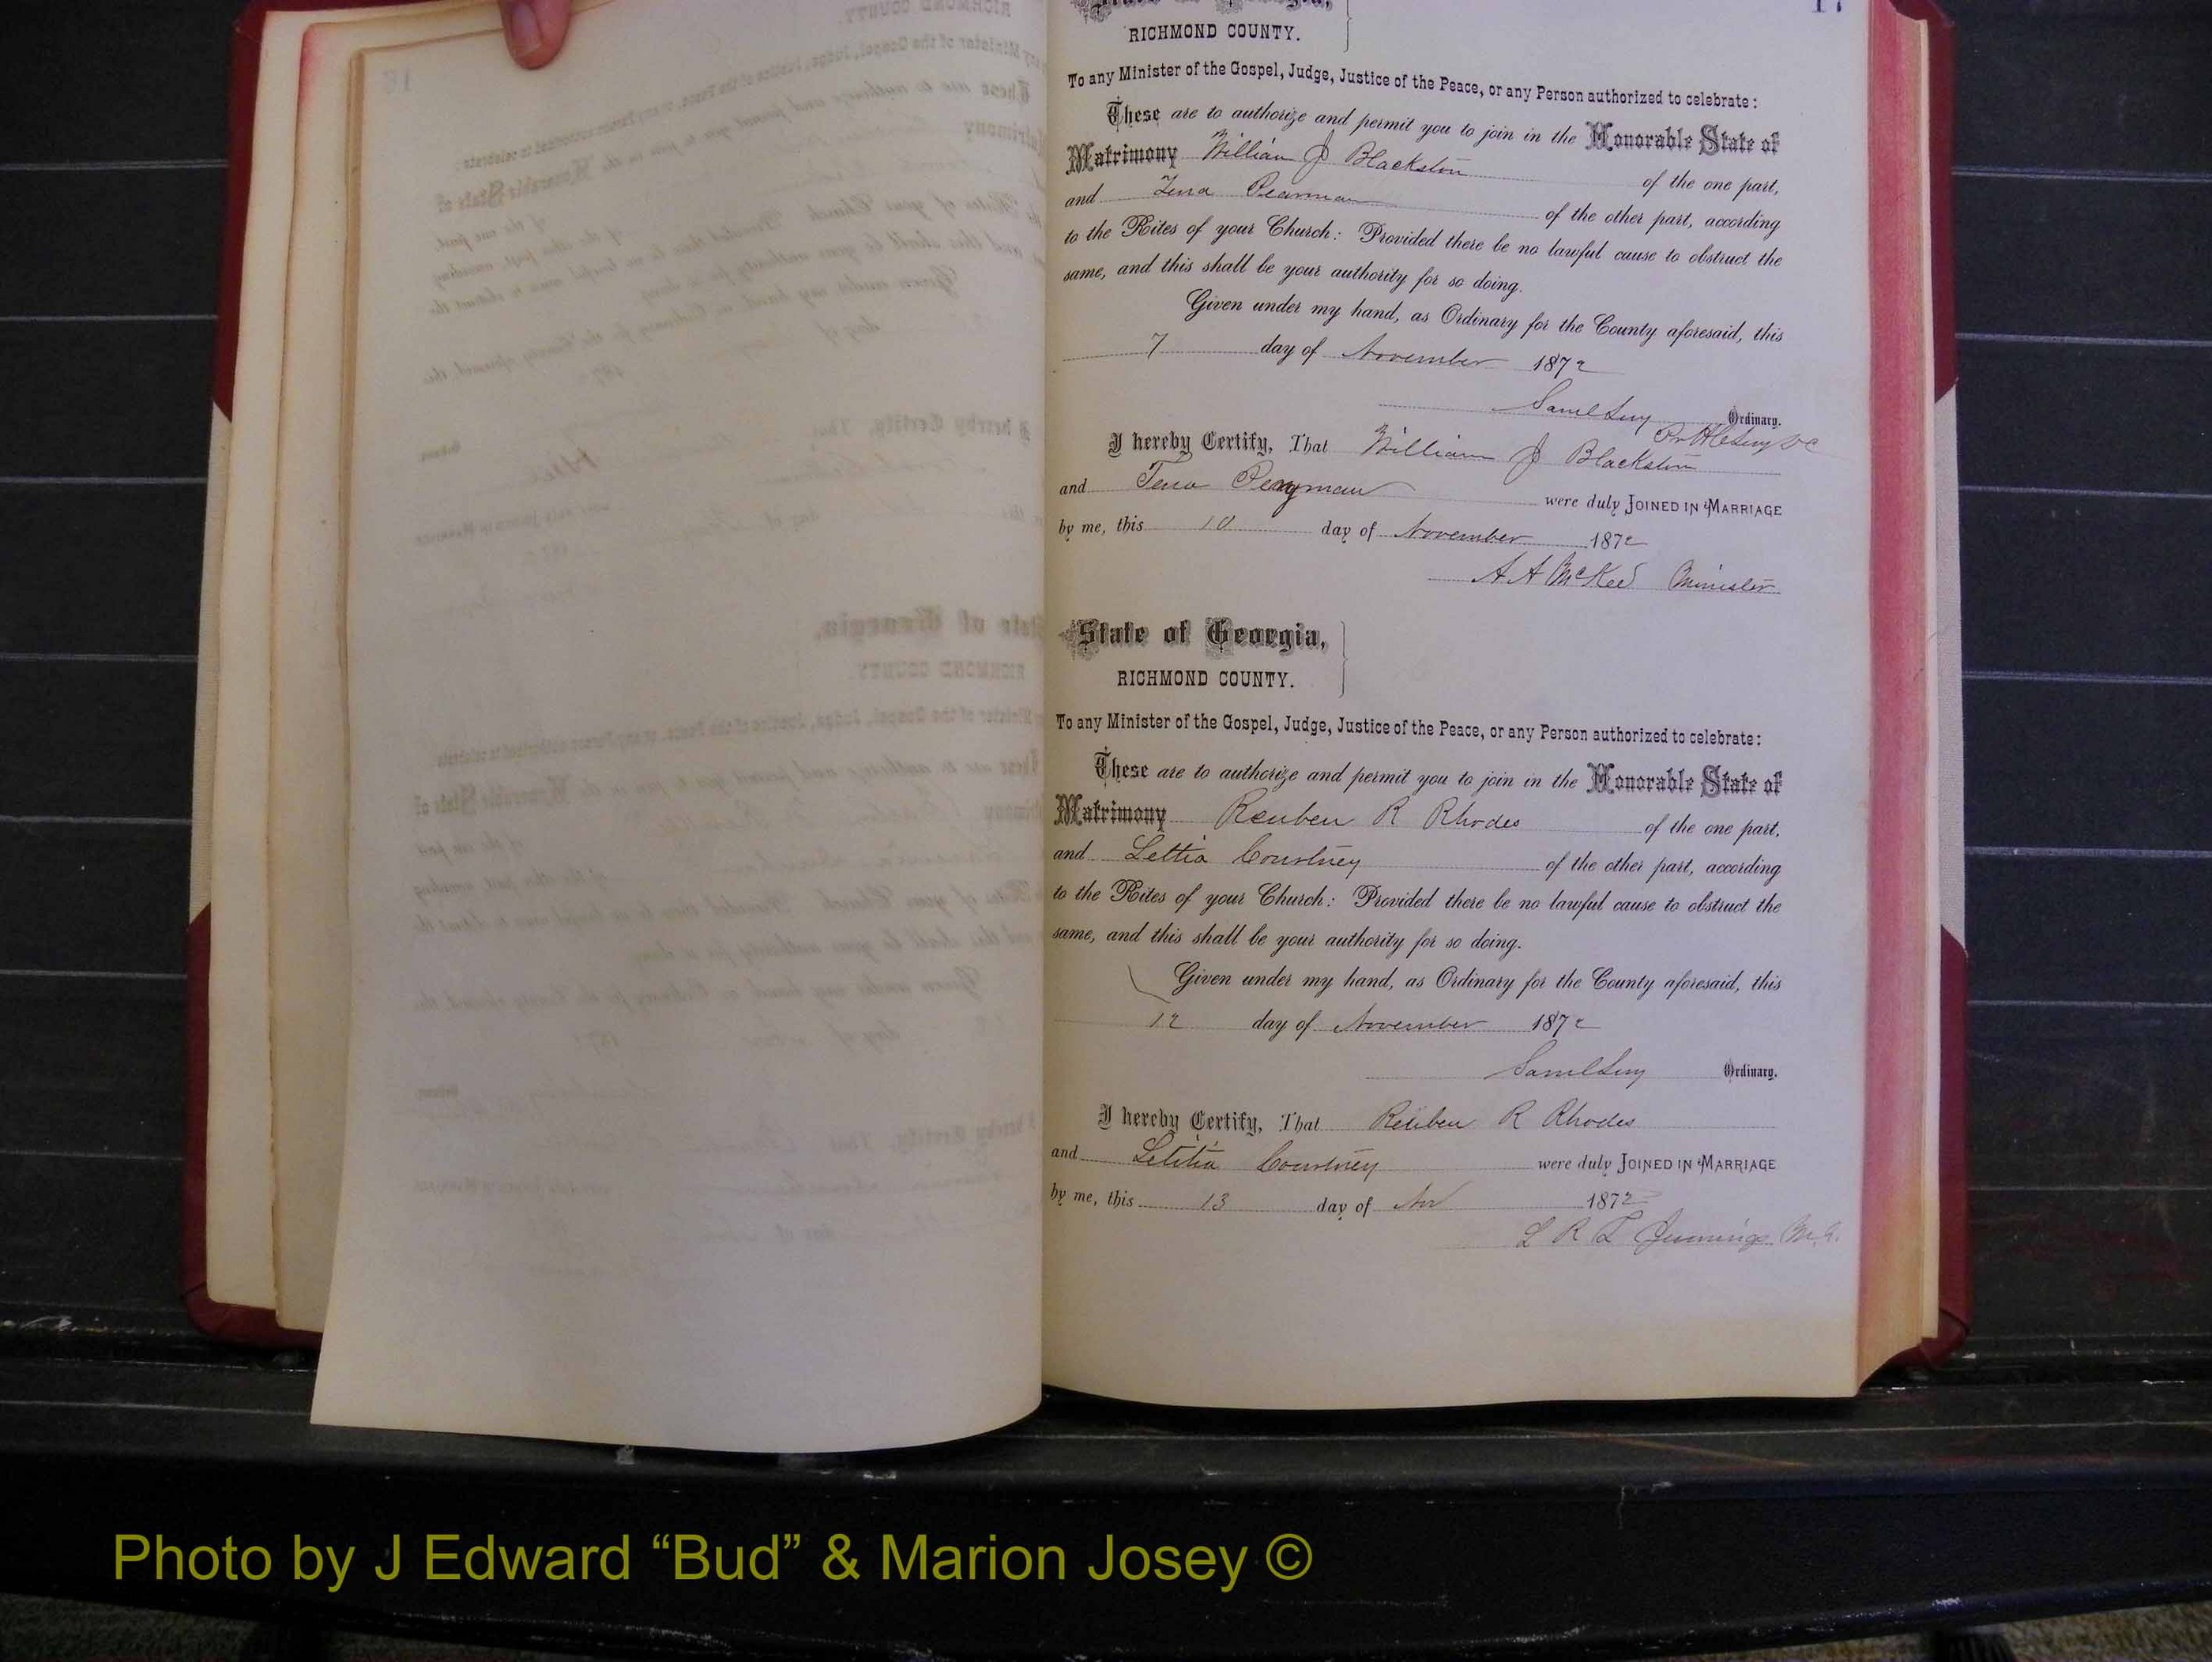 17
State of Georgia,
RICHMOND COUNTY.
To any Minister of the Gospel, Judge, Justice of the Peace, or any Person authorized to celebrate:
These are to authorize and permit you to join in the Honorable State of
Matrimony William J Blackston of the one part,
and Tena Pearman of the other part, according
to the Rites of your Church: Provided there be no lawful cause to obstruct the
same, and this shall be your authority for so doing.
Given under my hand, as Ordinary for the County aforesaid, this
7 day of November 1872
Saml Levy Ordinary.
I hereby Certify, That William J Blackston
and Tena were duly JOINED IN MARRIAGE
by me, this 10 day of November 1872
A A McKee Minister
State of Georgia,
RICHMOND COUNTY.
To any Minister of the Gospel, Judge, Justice of the Peace, or any Person authorized to celebrate:
These are to authorize and permit you to join in the Honorable State of
Matrimony Reuben R Rhodes of the one part,
and Lettia Courtney of the other part, according
to the Rites of your Church: Provided there be no lawful cause to obstruct the
same, and this shall be your authority for so doing.
Given under my hand, as Ordinary for the County aforesaid, this
12 day of November 1872
Saml Levy Ordinary.
I hereby Certify, That Reuben R Rhodes
and Letitia Courtney were duly JOINED IN MARRIAGE
by me, this 13 day of Nov 1872
L R L Jennings M.G.
Photo by J Edward “Bud” & Marion Josey ©